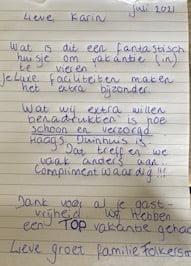 juli 2021
Lieve Karin
Wat is dit een fantastisch
huisje om vakantie (in)
te vieren
je luxe faciliteiten maken
het extra bijzonder
Wat wij extra willen
benadrukken is hoe
schoon en verzorgd
Haags Duinhuis is
Dat treffen we
vaak anders aan.
Compliment waardig!!!
Dank voor al je gast-
vrijheid wij hebben
een TOP vakantie gehad
Lieve groet familie Folkersm